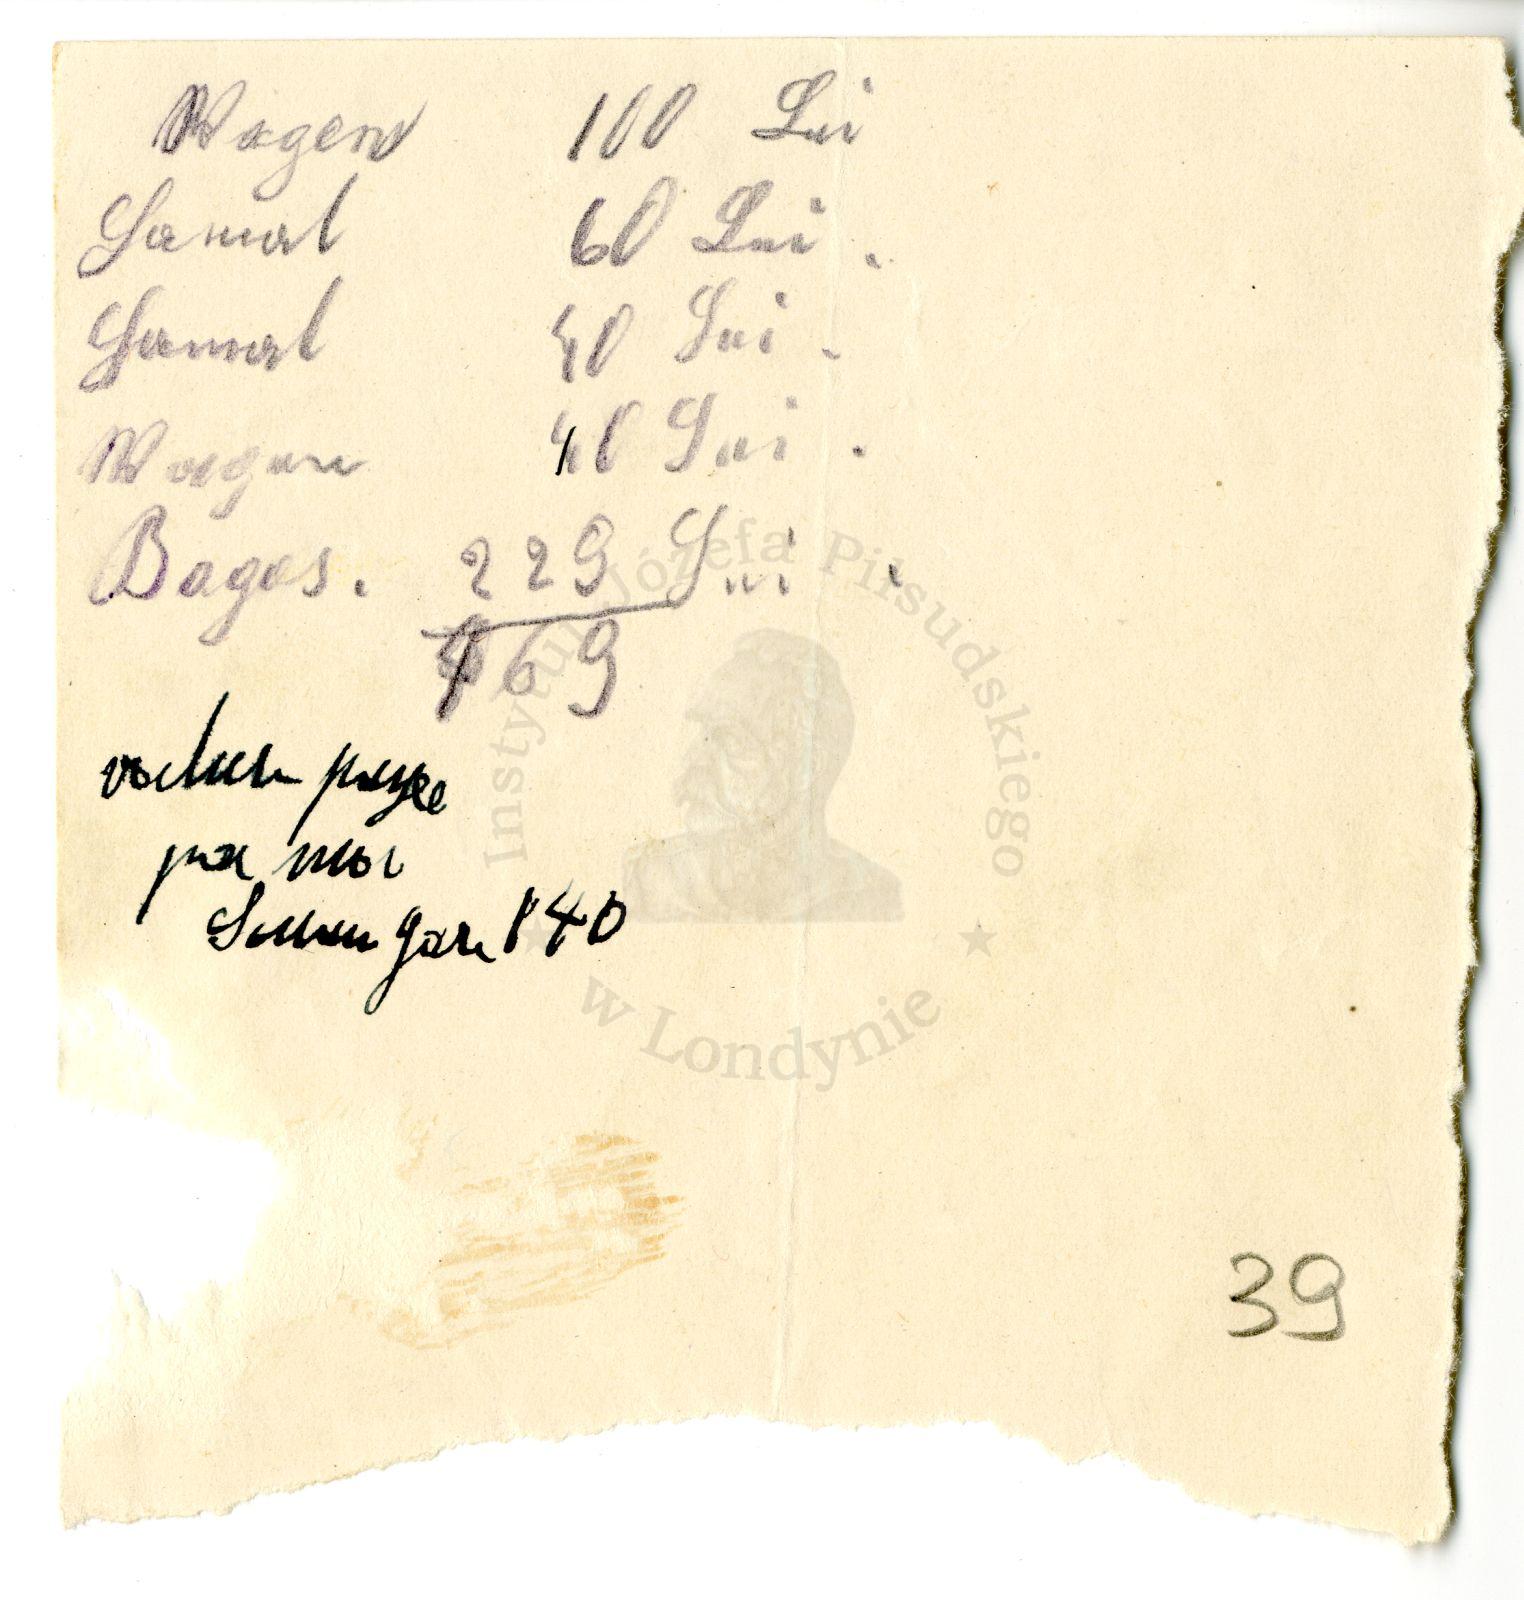 Wagen 100 Lei
Hamal 60 Lei .
Hamal 40 Lei .
Wagen 40 Lei .
Bagas. 229 Lei .
469
payée
par moi
gare 140
Instytut Józefa Piłsudskiego
w Londynie
39